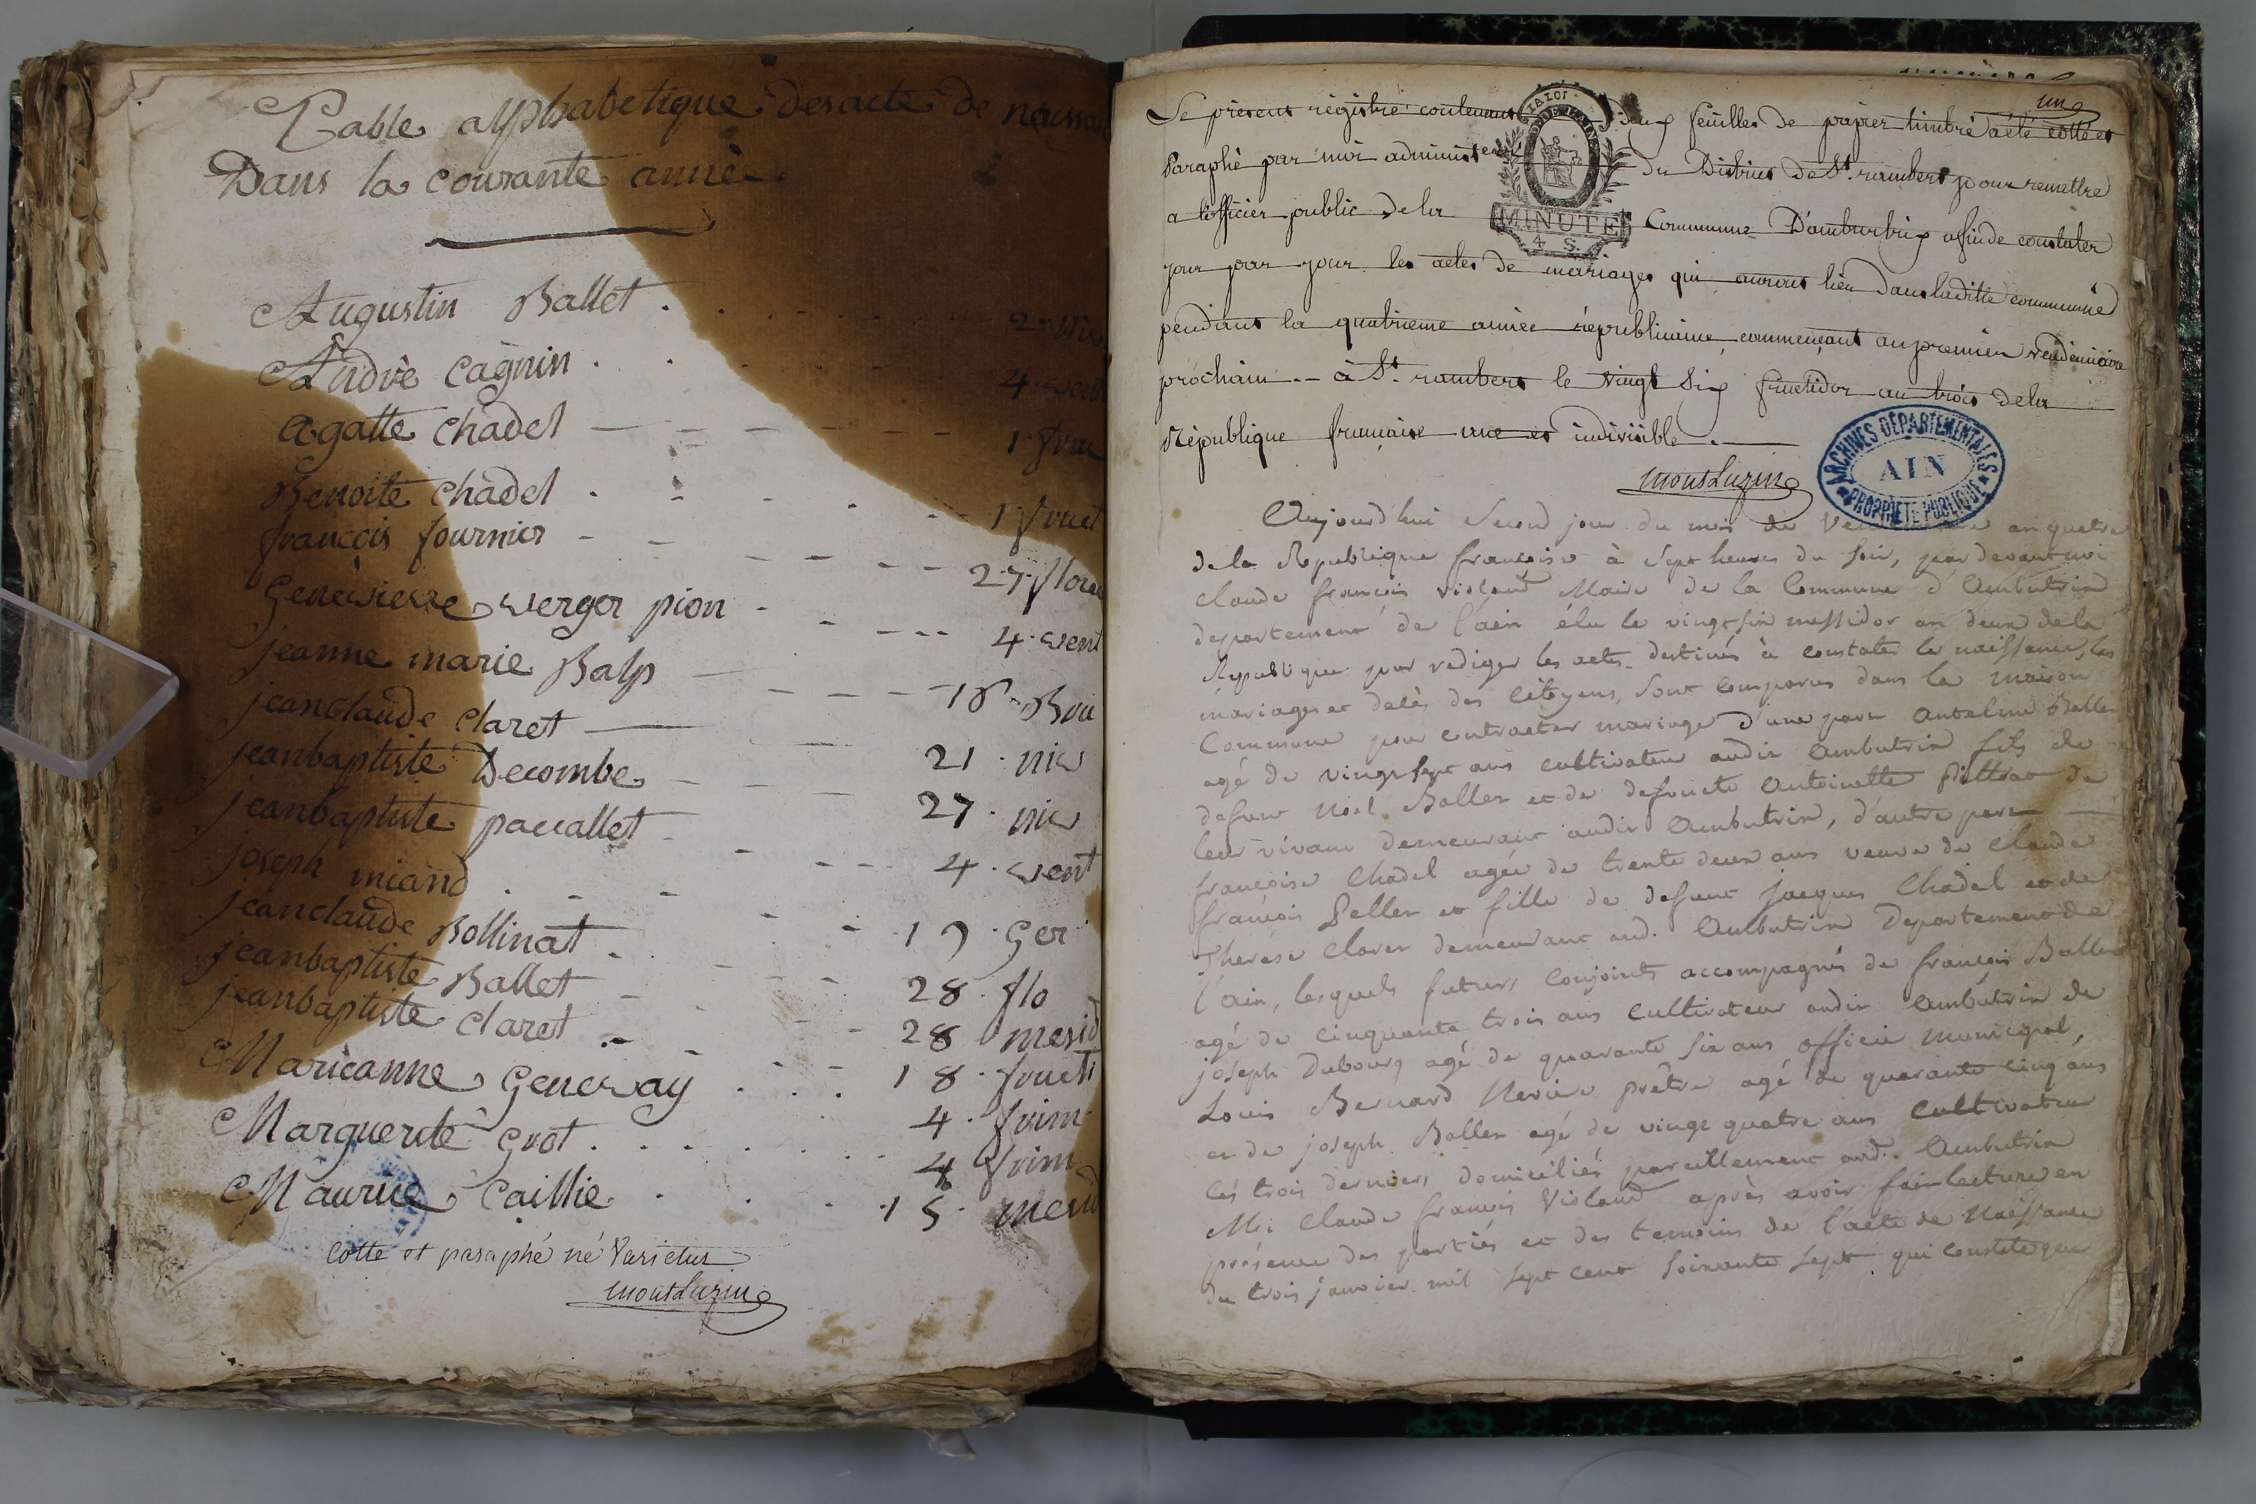 Table alphabetique des acte de naissa
Dans la courante année
Augustin Ballet . . . . . . . 2 niv
André Cagnin . . . . 4 vent
agatte chadel — — — — — 1 fruc
Benoite chadel . - - . . - - 1 fruct
françois fournier - - - - - - 27 flore
Genevieve verger pion - - - - - 4 vent
jeanne marie Balp — - - - - 18 Bru
jeanclaude claret — 21 niv
jeanbaptiste Decombe - 27 niv
jeanbaptiste paccallet - - - - - 4 vent
joseph miand . - - - - 19 Ger
jeanclaude Bollinat . - - - . 28 flo
jeanbaptiste Ballet - - - - 28 mesid
jeanbaptiste claret . - - - - 18 fructi
Marieanne Genevay . . . 4 frim
Marguerite Grot . . . . . . . 4 frim
Maurice Caillie . . . . 15 mesid
Cotté et paraphé né Varietur
montluzin
un
Le présent régistre contenant deux feuilles de papier timbré a été cotté et
Paraphé par moi administrateur du District de St. rambert pour remettre
a l'officier public de la Commune D'ambutrix affin de constater
jour par jour les actes de mariages qui auront lieu dans laditte commune
pendant la quatrieme année républicaine commencant au premier vendemiaire
prochain. — à St. rambert le vingt six fructidor an trois de la
République francaise une et indivisible. —
montluzin
LA LOI
MINUTE
4 S.
ARCHIVES DÉPARTEMENTALES
AIN
PROPRIÉTÉ PUBLIQUE
Aujourd'hui Second jour du mois de an quatre
de la Republique françoise à Sept heures du soir, par devant moi
claude françois violand Maire de la Commune d'Ambutrix
departement de l'ain élu le vingt six messidor an deux de la
Republique pour rediger les actes destinés à constater la naissance, les
mariages et decès des Citoyens, sont comparus dans la maison
Commune pour contracter mariage d'une part Antelme Ballet
agé de vingt sept ans cultivateur audit Ambutrix fils de
defunt Noel Ballet et de defuncte Antoinette de
leur vivant demeurant audit Ambutrix, d'autre part
françoise Chadel agée de trente deux ans veuve de Claude
françois Pellet et fille de defunt Jacques Chadel et de
Therese Claret demeurant aud. Ambutrix Departement de
l'ain, lesquels futurs conjoints accompagnés de françois Ballet
agé de cinquante trois ans cultivateur audit Ambutrix de
joseph Dubourg agé de quarante six ans officier municipal,
Louis Bernard prêtre agé de quarante cinq ans
et de joseph Ballet agé de vingt quatre ans cultivateur
les trois derniers domiciliés pareillement aud. Ambutrix
Moi Claude françois Violand après avoir fait lecture en
présence des parties et des temoins de l'acte de Naissance
du trois janvier mil sept cent soixante sept qui constate que